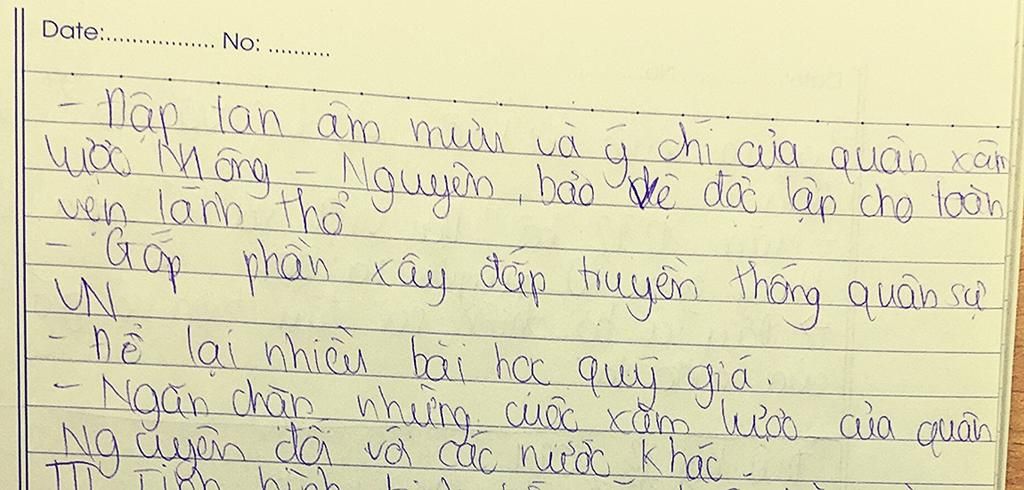 Date:................. No: ..........
- Đập tan âm mưu và ý chí của quân xâm
lược Mông - Nguyên, bảo vệ độc lập cho toàn
vẹn lãnh thổ
- Góp phần xây đắp truyền thống quân sự
VN
- Để lại nhiều bài học quý giá.
- Ngăn chặn những cuộc xâm lược của quân
Nguyên đối với các nước khác.
III Tình hình